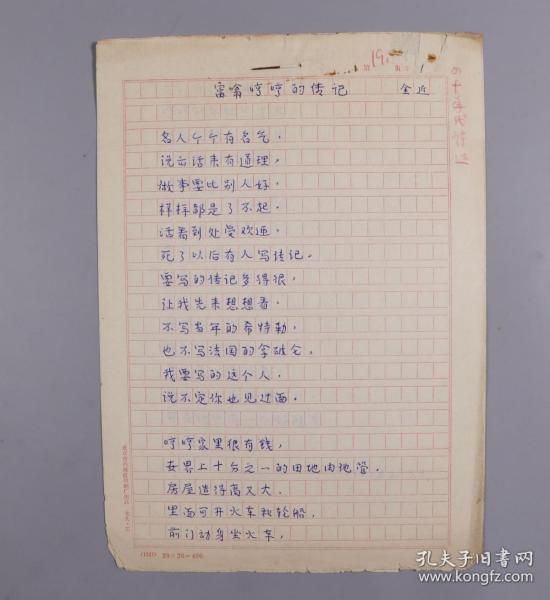 第19页
富翁哼哼的传记 金近
四十年代诗选
名人个个有名气，
说出话来有道理，
做事要比别人好，
样样都是了不起。
活着到处受欢迎，
死了以后有人写传记。
要写的传记多得很，
让我先来想想看。
不写当年的希特勒，
也不写法国的拿破仑，
我要写的这个人，
说不定你也见过面。
哼哼家里很有钱，
世界上十分之一的田地由他管。
房屋造得高又大，
里面可开火车和轮船，
前门动身坐火车，
(1521) 20×20=400
孔夫子旧书网
www.kongfz.com